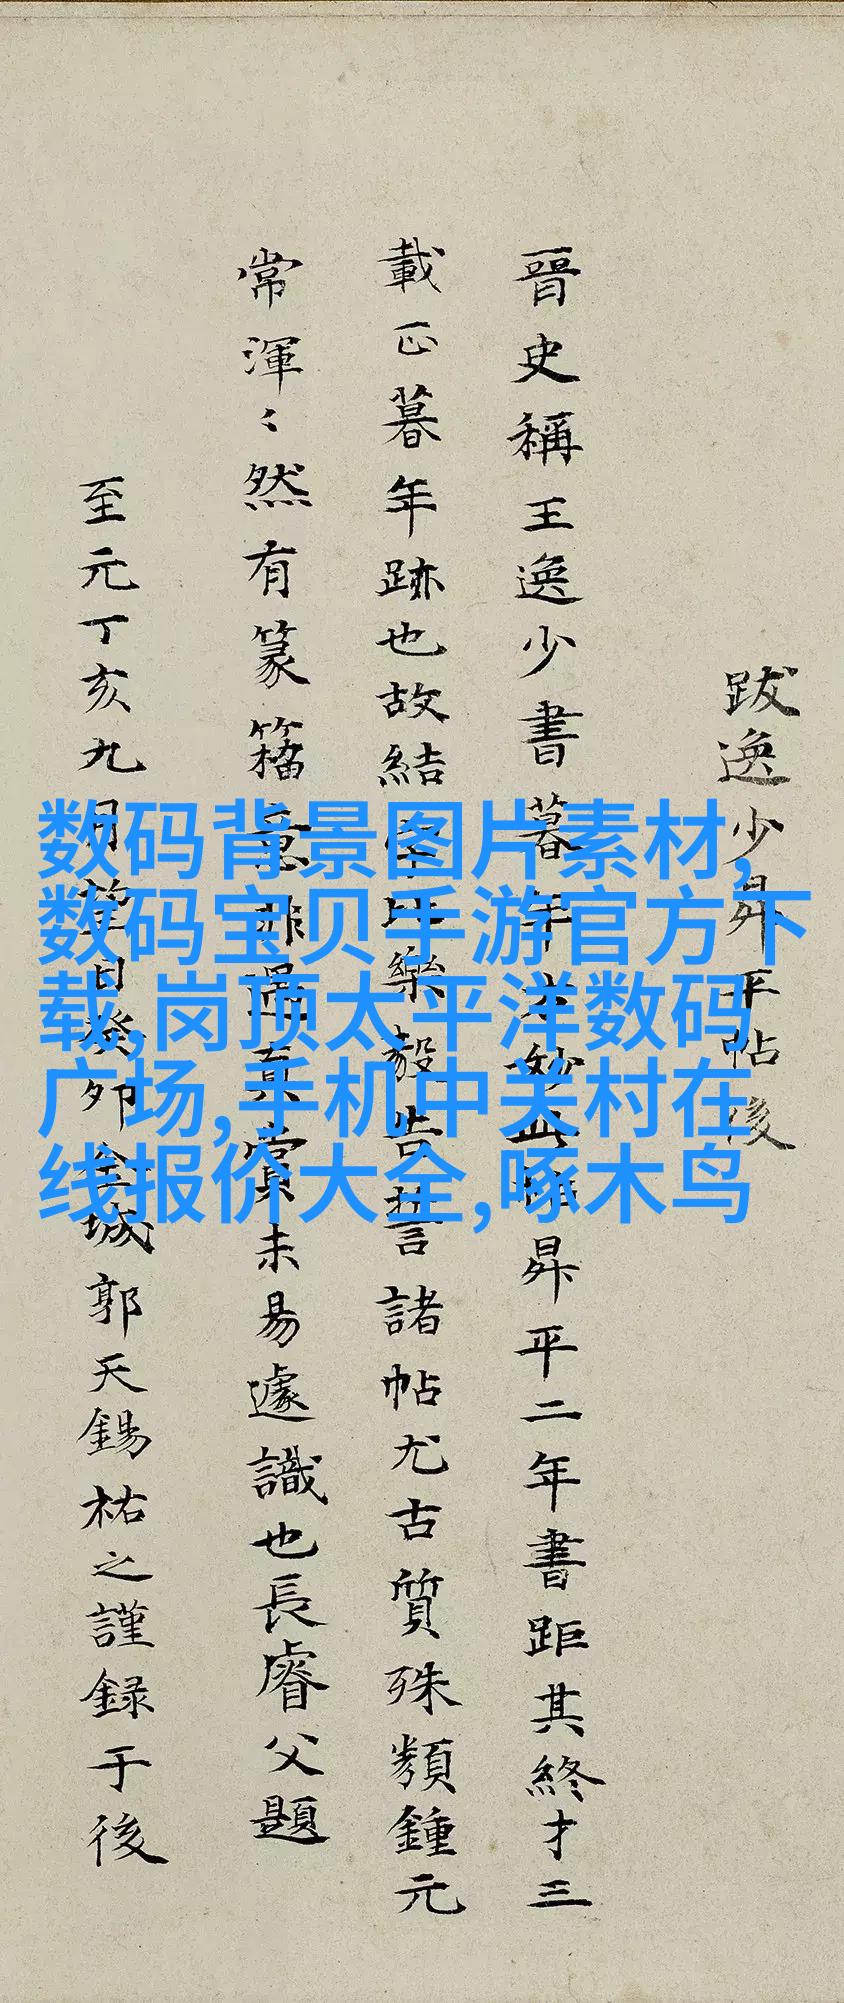 跋逸少昇平帖後
晉史稱王逸少書暮年方妙此昇平二年書距其終才三
載正暮年跡也故結字比樂毅告誓諸帖尤古質殊類鍾元
常渾〻然有篆籀意非過真賞未易遽識也長睿父題
至元丁亥九月望日癸卯金城郭天錫祐之謹録于後
数码背景图片素材,
数码宝贝手游官方下
载,岗顶太平洋数码
广场,手机中关村在
线报价大全,啄木鸟